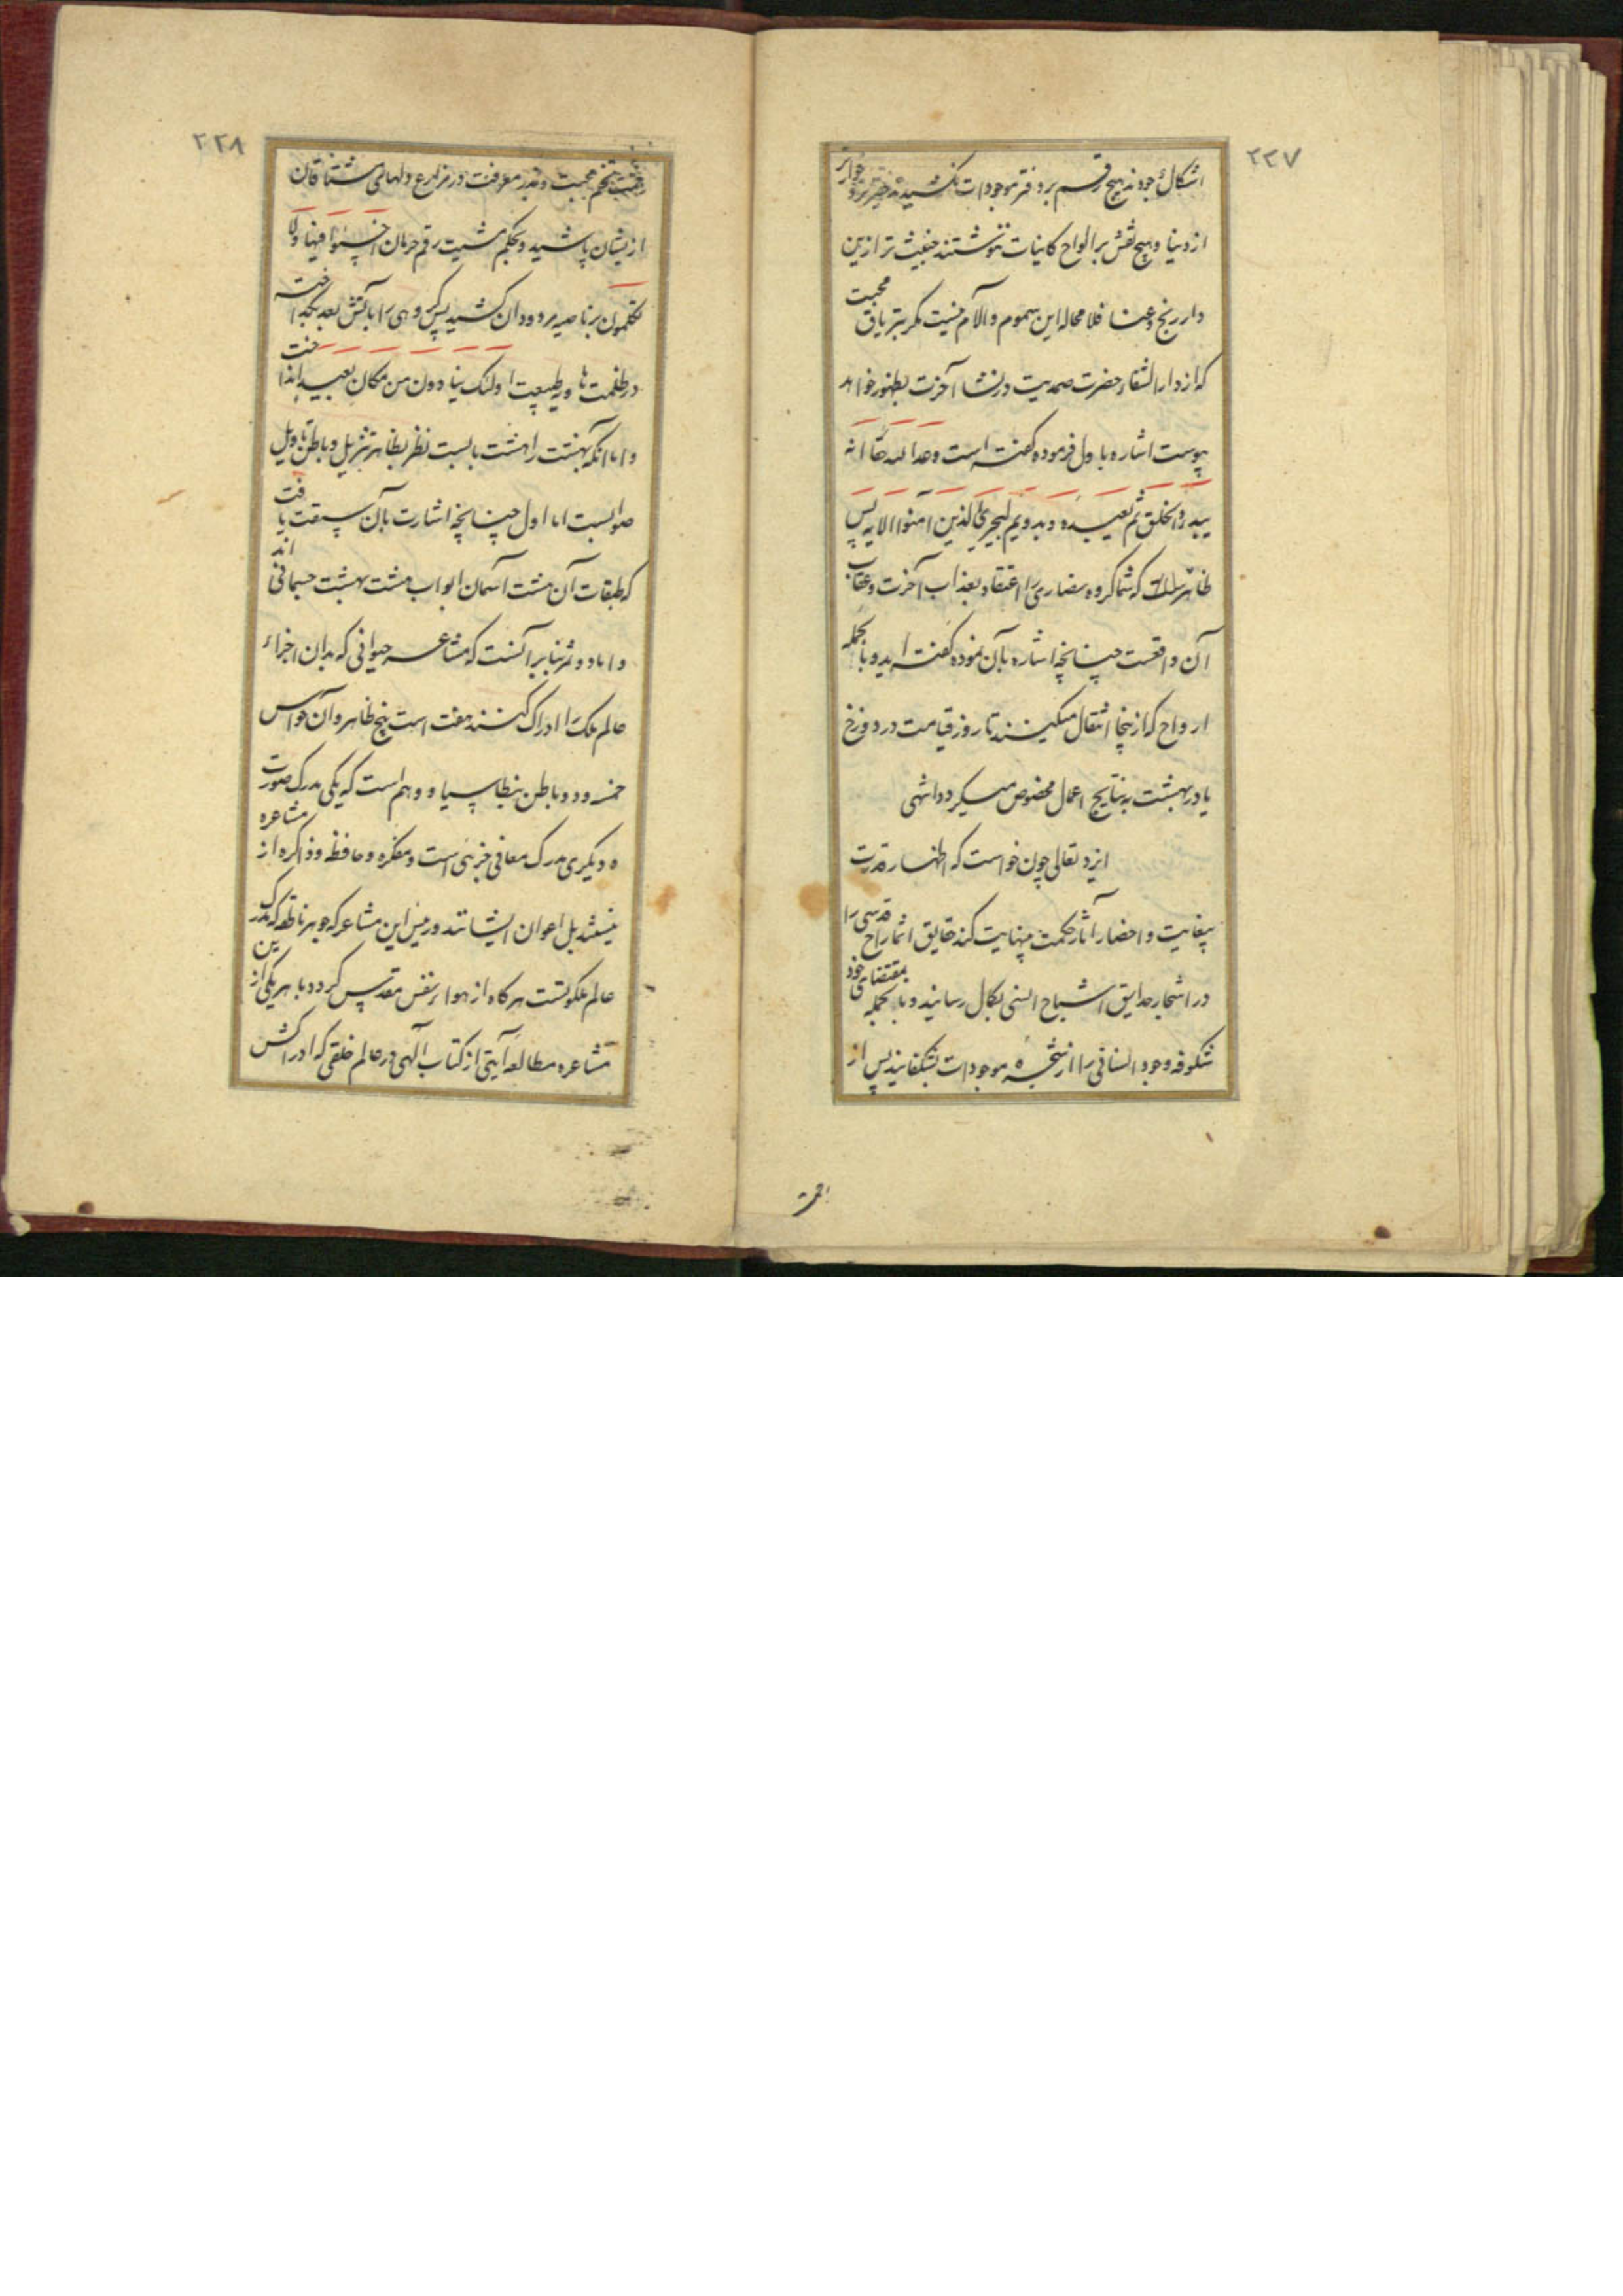 ۲۲۷
اشکال وجودند هیچ رقم بر دفتر موجودات نکشیدند حقیرتر و خوارتر
از دنیا و هیچ نقش بر الواح کاینات ننوشتند خبیث تر ازین
دار رنج و عنا فلا محاله این سموم و آلام نیست مکر بتریاق محبت
که از دار الشفاء حضرت صمدیت در نشاء آخرت بظهور خواهد
پیوست اشاره باول فرموده کفته است وعد الله حقا انه
یبدؤ الخلق ثم یعیده و بدویم لیجزی الذین آمنوا الایه پس
ظاهر که شما کروه نصاری را اعتقاد بعذاب آخرت و عقاب
آن واقعست چنانچه اشاره بآن نموده کفته اید و بالجمله
ارواح که از ینجا انتقال میکنند تا روز قیامت در دوزخ
یا در بهشت به نتایج اعمال مخصوص میکردد انتهی
ایزد تعالی چون خواست که اظهار قدرت
بیغایت و احضار آثار حکمت بینهایت کند حقایق اثمار ارواح قدسی را
در اشجار حدایق اشباح انسی بکمال رسانید و بالجمله بمقتضای جود
شکوفه وجود انسانی را از شجره موجودات بشکفانید پس از
۲۲۸
تخم محبت و بذر معرفت در مزارع دلهای مشتاقان
ازیشان پاشید و بحکم مشیت رقم حرمان اخسئوا فیها ولا
تکلمون بر ناصیه مردودان کشید پس کروهی را بآتش بعد
در ظلمت هاویه طبیعت اولئک ینادون من مکان بعید انداخت
و اما آنکه بهشت را هشت بابست نظر بظاهر تنزیل و باطن تاویل
صوابست اما اول چنانچه اشارت بآن سبقت یافت
که طبقات آن هشت آسمان ابواب هشت بهشت جسمانی اند
و اما دویم بنابر آنست که مشاعر حیوانی که بدان اجزاء
عالم ملک را ادراک کنند هفت است پنج ظاهر و آن حواس
خمسه و دو باطن و وهم است که یکی مدرک صورت
و دیکری مدرک معانی جزئی است و مفکره و حافظه و ذاکره از مشاعره
نیستند بل اعوان ایشانند ورئیس این مشاعر که جوهر ناطقه که مدرک
عالم ملکوتست هرکاه از هواء نفس مقدس کردد با هر یکی از ین
مشاعره مطالعه آیتی از کتاب آلهی در عالم خلقی که ادراکش